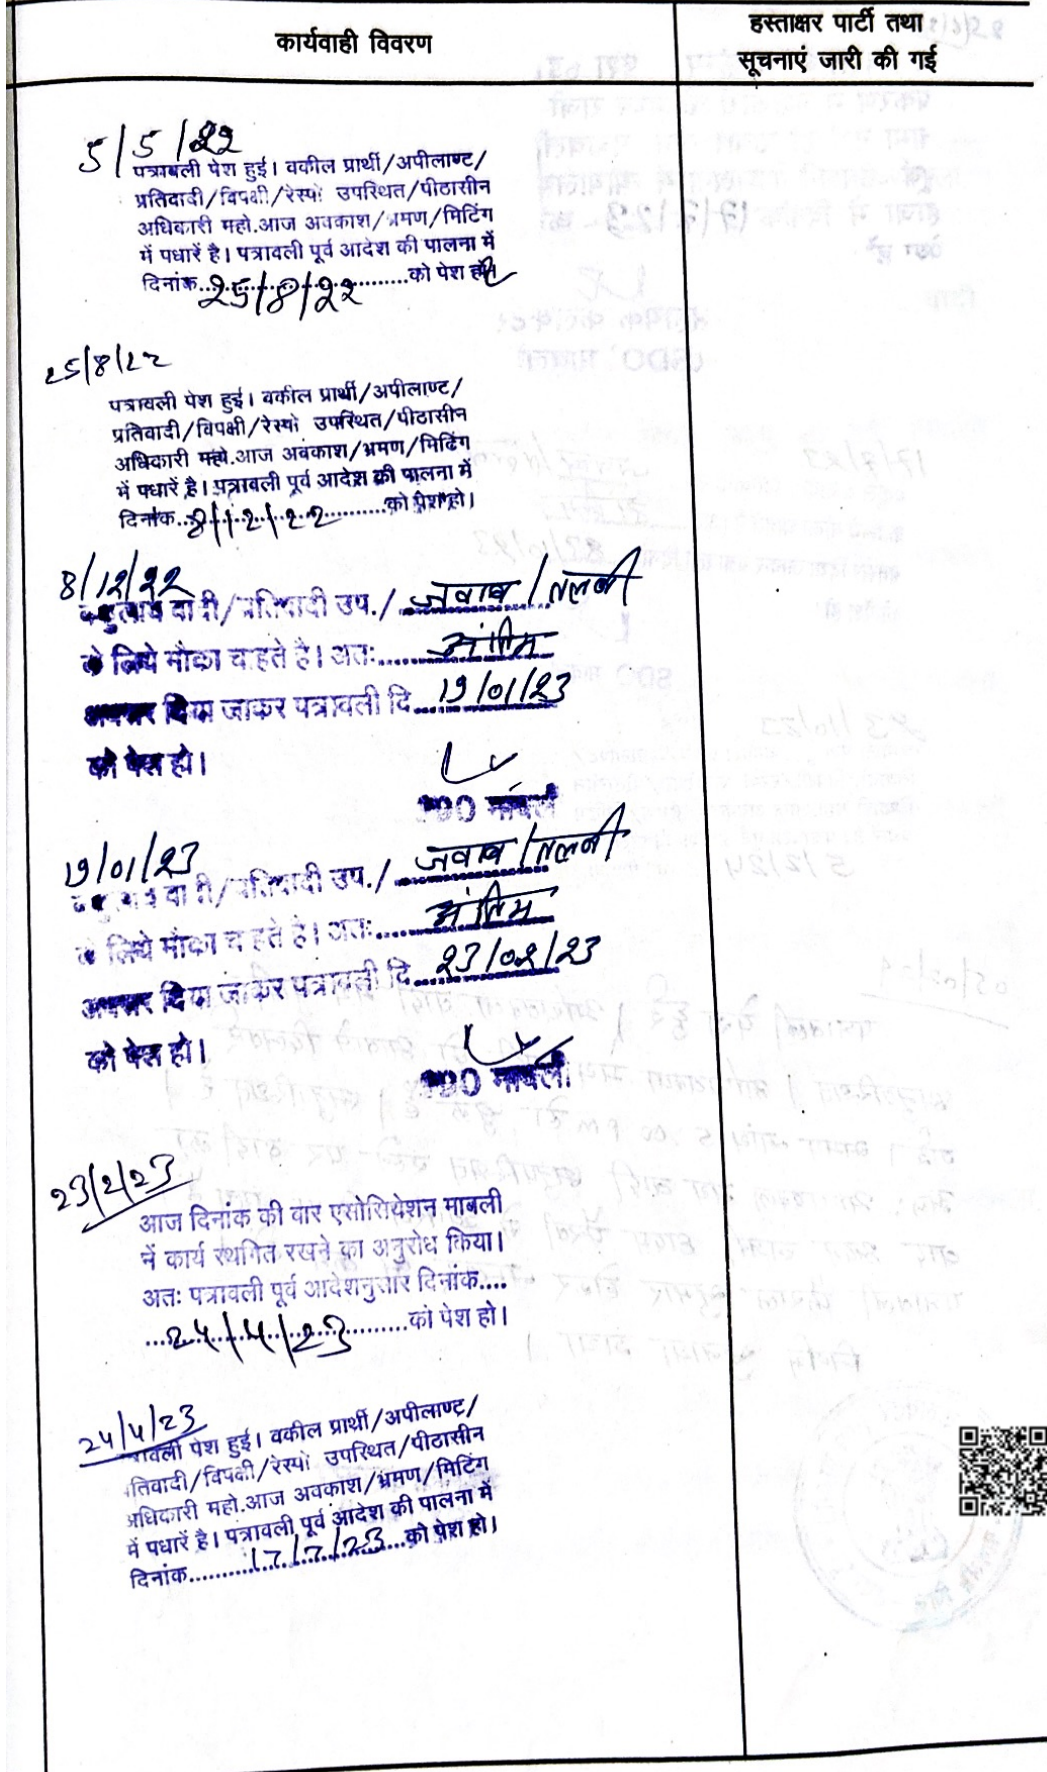 कार्यवाही विवरण
हस्ताक्षर पार्टी तथा
सूचनाएं जारी की गई
5/5/22
पत्रावली पेश हुई। वकील प्रार्थी/अपीलाण्ट/
प्रतिवादी/विपक्षी/रेस्पो उपस्थित/पीठासीन
अधिकारी महो.आज अवकाश/भ्रमण/मिटिंग
में पधारें है। पत्रावली पूर्व आदेश की पालना में
दिनांक..25/8/22..को पेश हो।
25/8/22
पत्रावली पेश हुई। वकील प्रार्थी/अपीलाण्ट/
प्रतिवादी/विपक्षी/रेस्पो उपस्थित/पीठासीन
अधिकारी महो.आज अवकाश/भ्रमण/मिटिंग
में पधारें है। पत्रावली पूर्व आदेश की पालना में
दिनांक..8/12/22..को पेश हो।
8/12/22
वादी/प्रतिवादी उप./..जवाब/तलबी
के लिये मौका चाहते है। अतः..अंतिम
अवसर दिया जाकर पत्रावली दि..19/01/23
को पेश हो।
SDO मावली
19/01/23
वादी/प्रतिवादी उप./..जवाब/तलबी
के लिये मौका चाहते है। अतः..अंतिम
अवसर दिया जाकर पत्रावली दि..23/02/23
को पेश हो।
SDO मावली
23/2/23
आज दिनांक की वार एसोसियेशन मावली
में कार्य स्थगित रखने का अनुरोध किया।
अतः पत्रावली पूर्व आदेशनुसार दिनांक....
...24/4/23...को पेश हो।
24/4/23
पत्रावली पेश हुई। वकील प्रार्थी/अपीलाण्ट/
प्रतिवादी/विपक्षी/रेस्पो उपस्थित/पीठासीन
अधिकारी महो.आज अवकाश/भ्रमण/मिटिंग
में पधारें है। पत्रावली पूर्व आदेश की पालना में
दिनांक..17/7/23..को पेश हो।